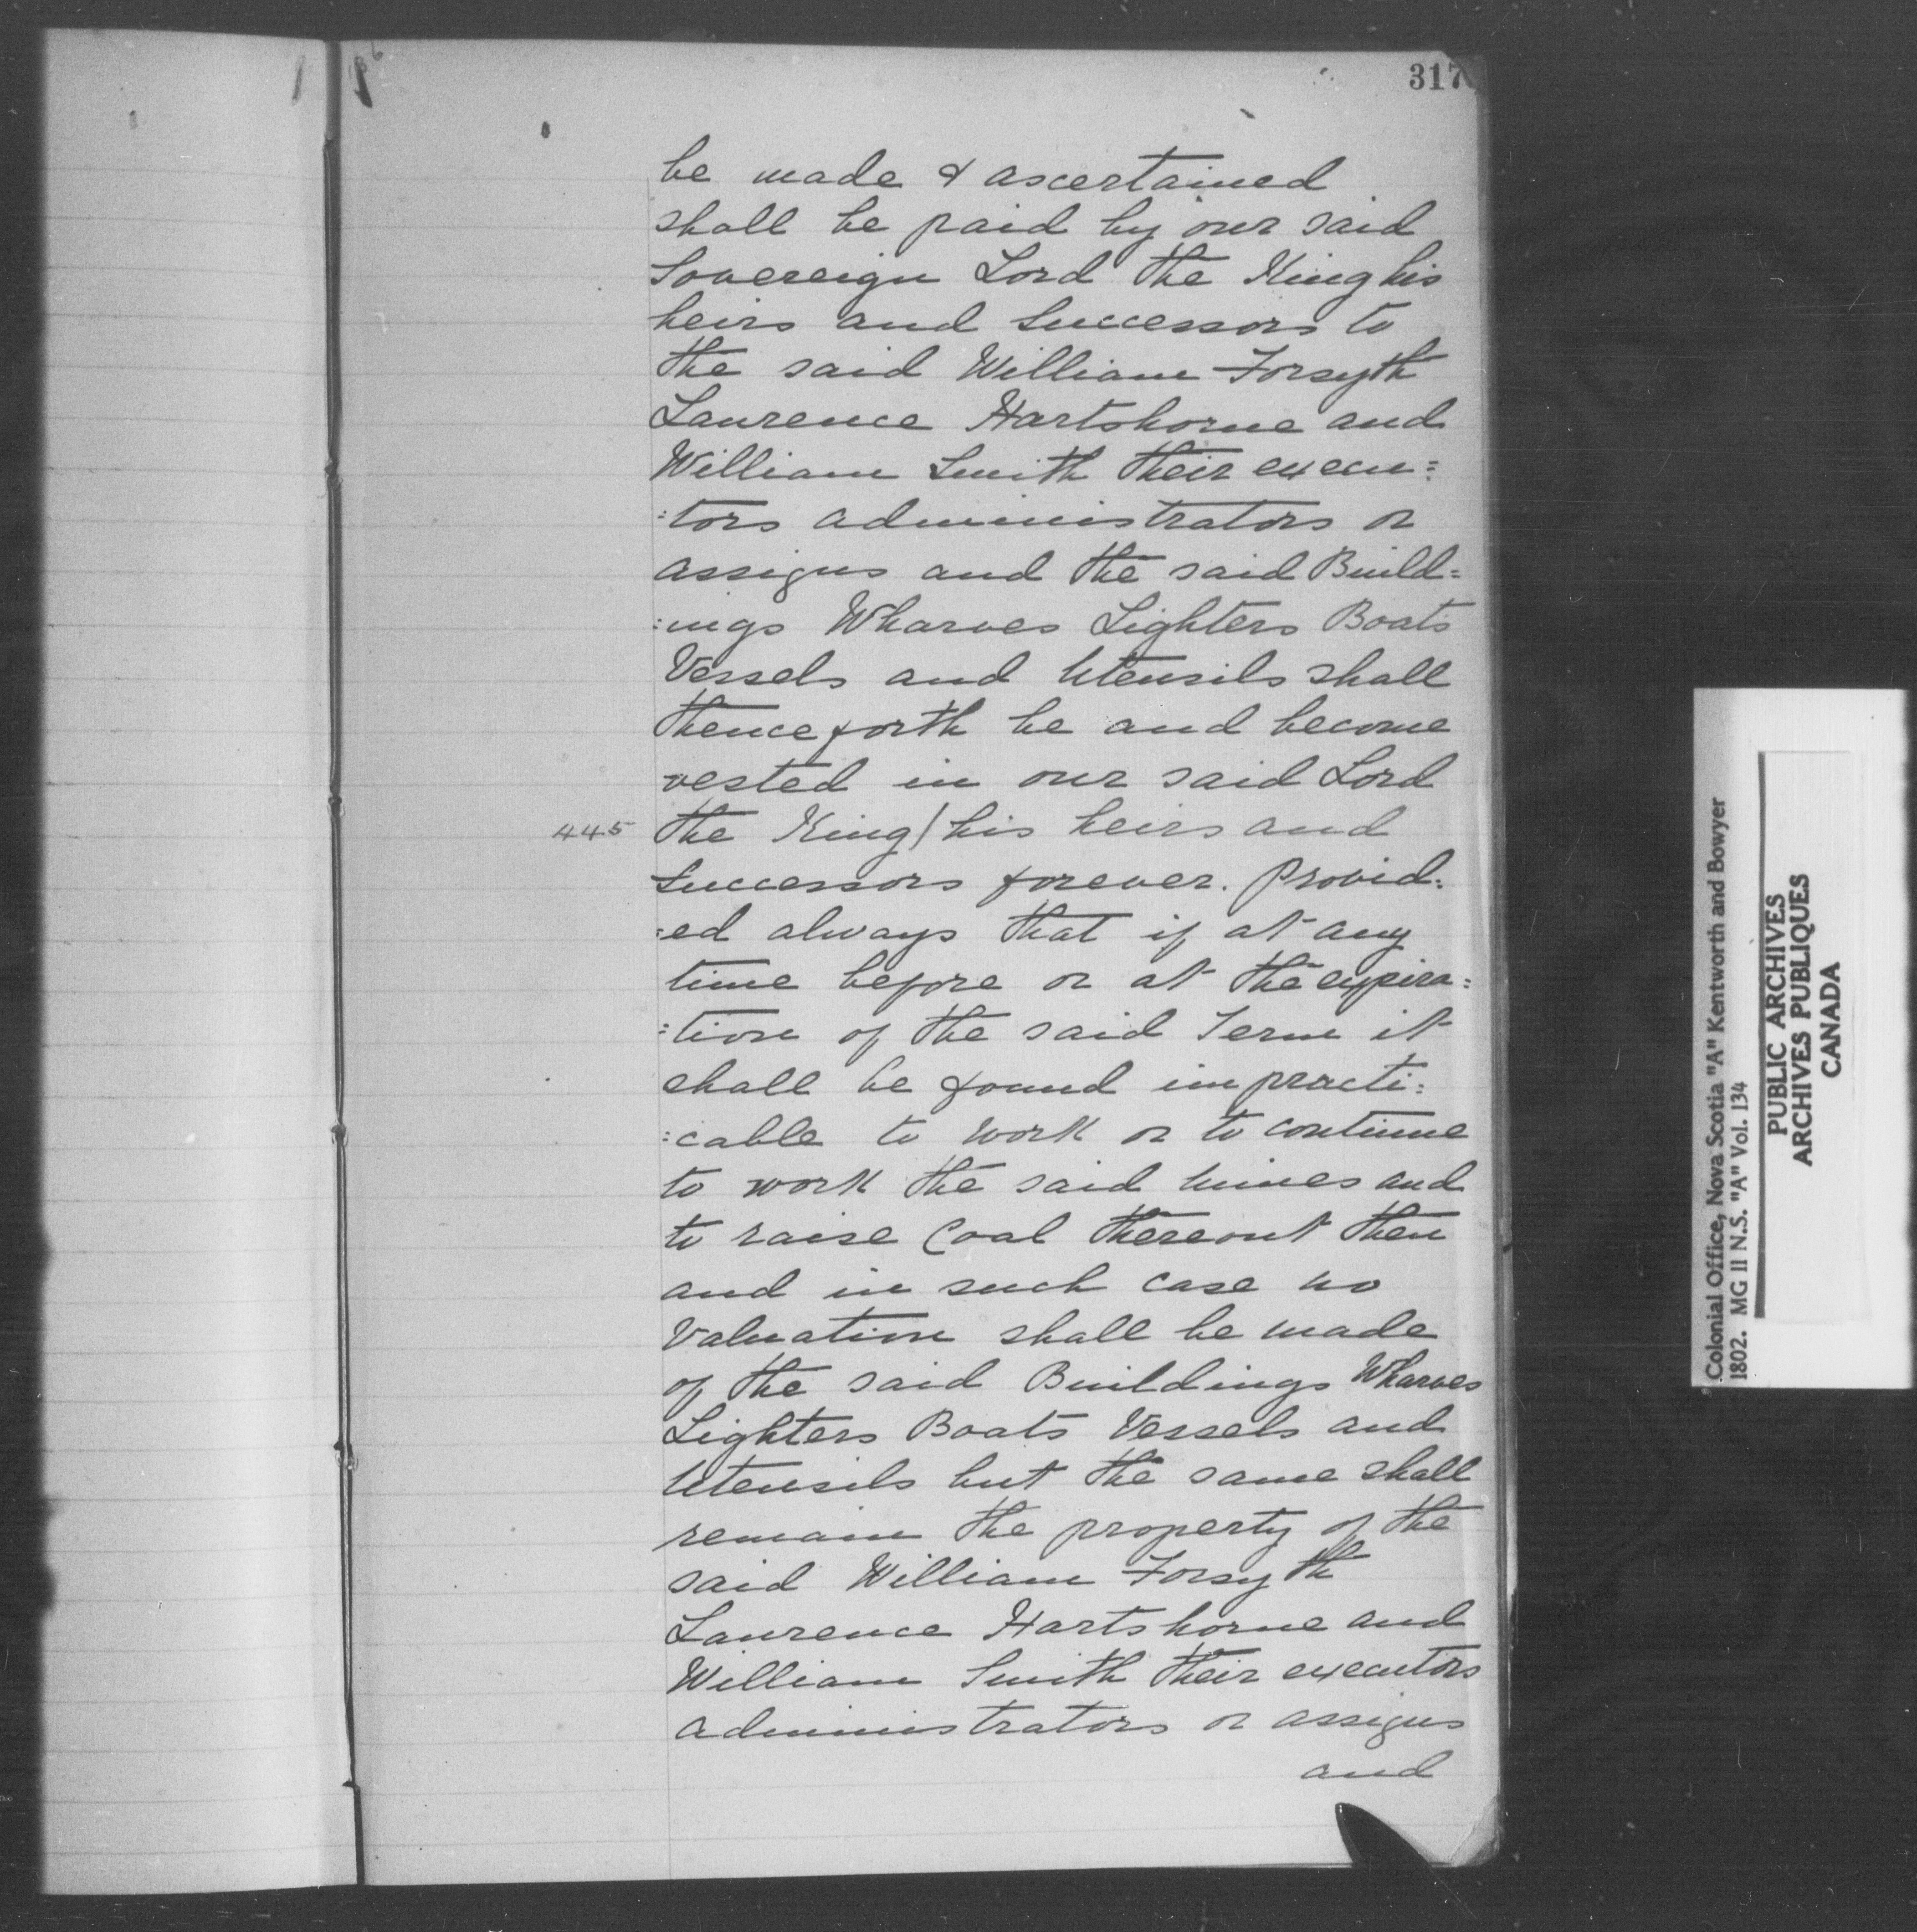 317
be made & ascertained
shall be paid by our said
Sovereign Lord the King his
heirs and Successors to
the said William Forsyth
Laurence Hartshorne and
William Smith their execu=
=tors administrators or
assigns and the said Build=
=ings Wharves Lighters Boats
Vessels and Utensils shall
thenceforth be and become
vested in our said Lord
445 the King / his heirs and
Successors forever. Provid=
=ed always that if at any
time before or at the expira=
=tion of the said Term it
shall be found impracti=
=cable to work or to continue
to work the said Mines and
to raise Coal thereout then
and in such case no
Valuation shall be made
of the said Buildings Wharves
Lighters Boats Vessels and
Utensils but the same shall
remain the property of the
said William Forsyth
Laurence Hartshorne and
William Smith their executors
administrators or assigns
and
Colonial Office, Nova Scotia "A" Kentworth and Bowyer
1802. MG 11 N.S. "A" Vol. 134
PUBLIC ARCHIVES
ARCHIVES PUBLIQUES
CANADA